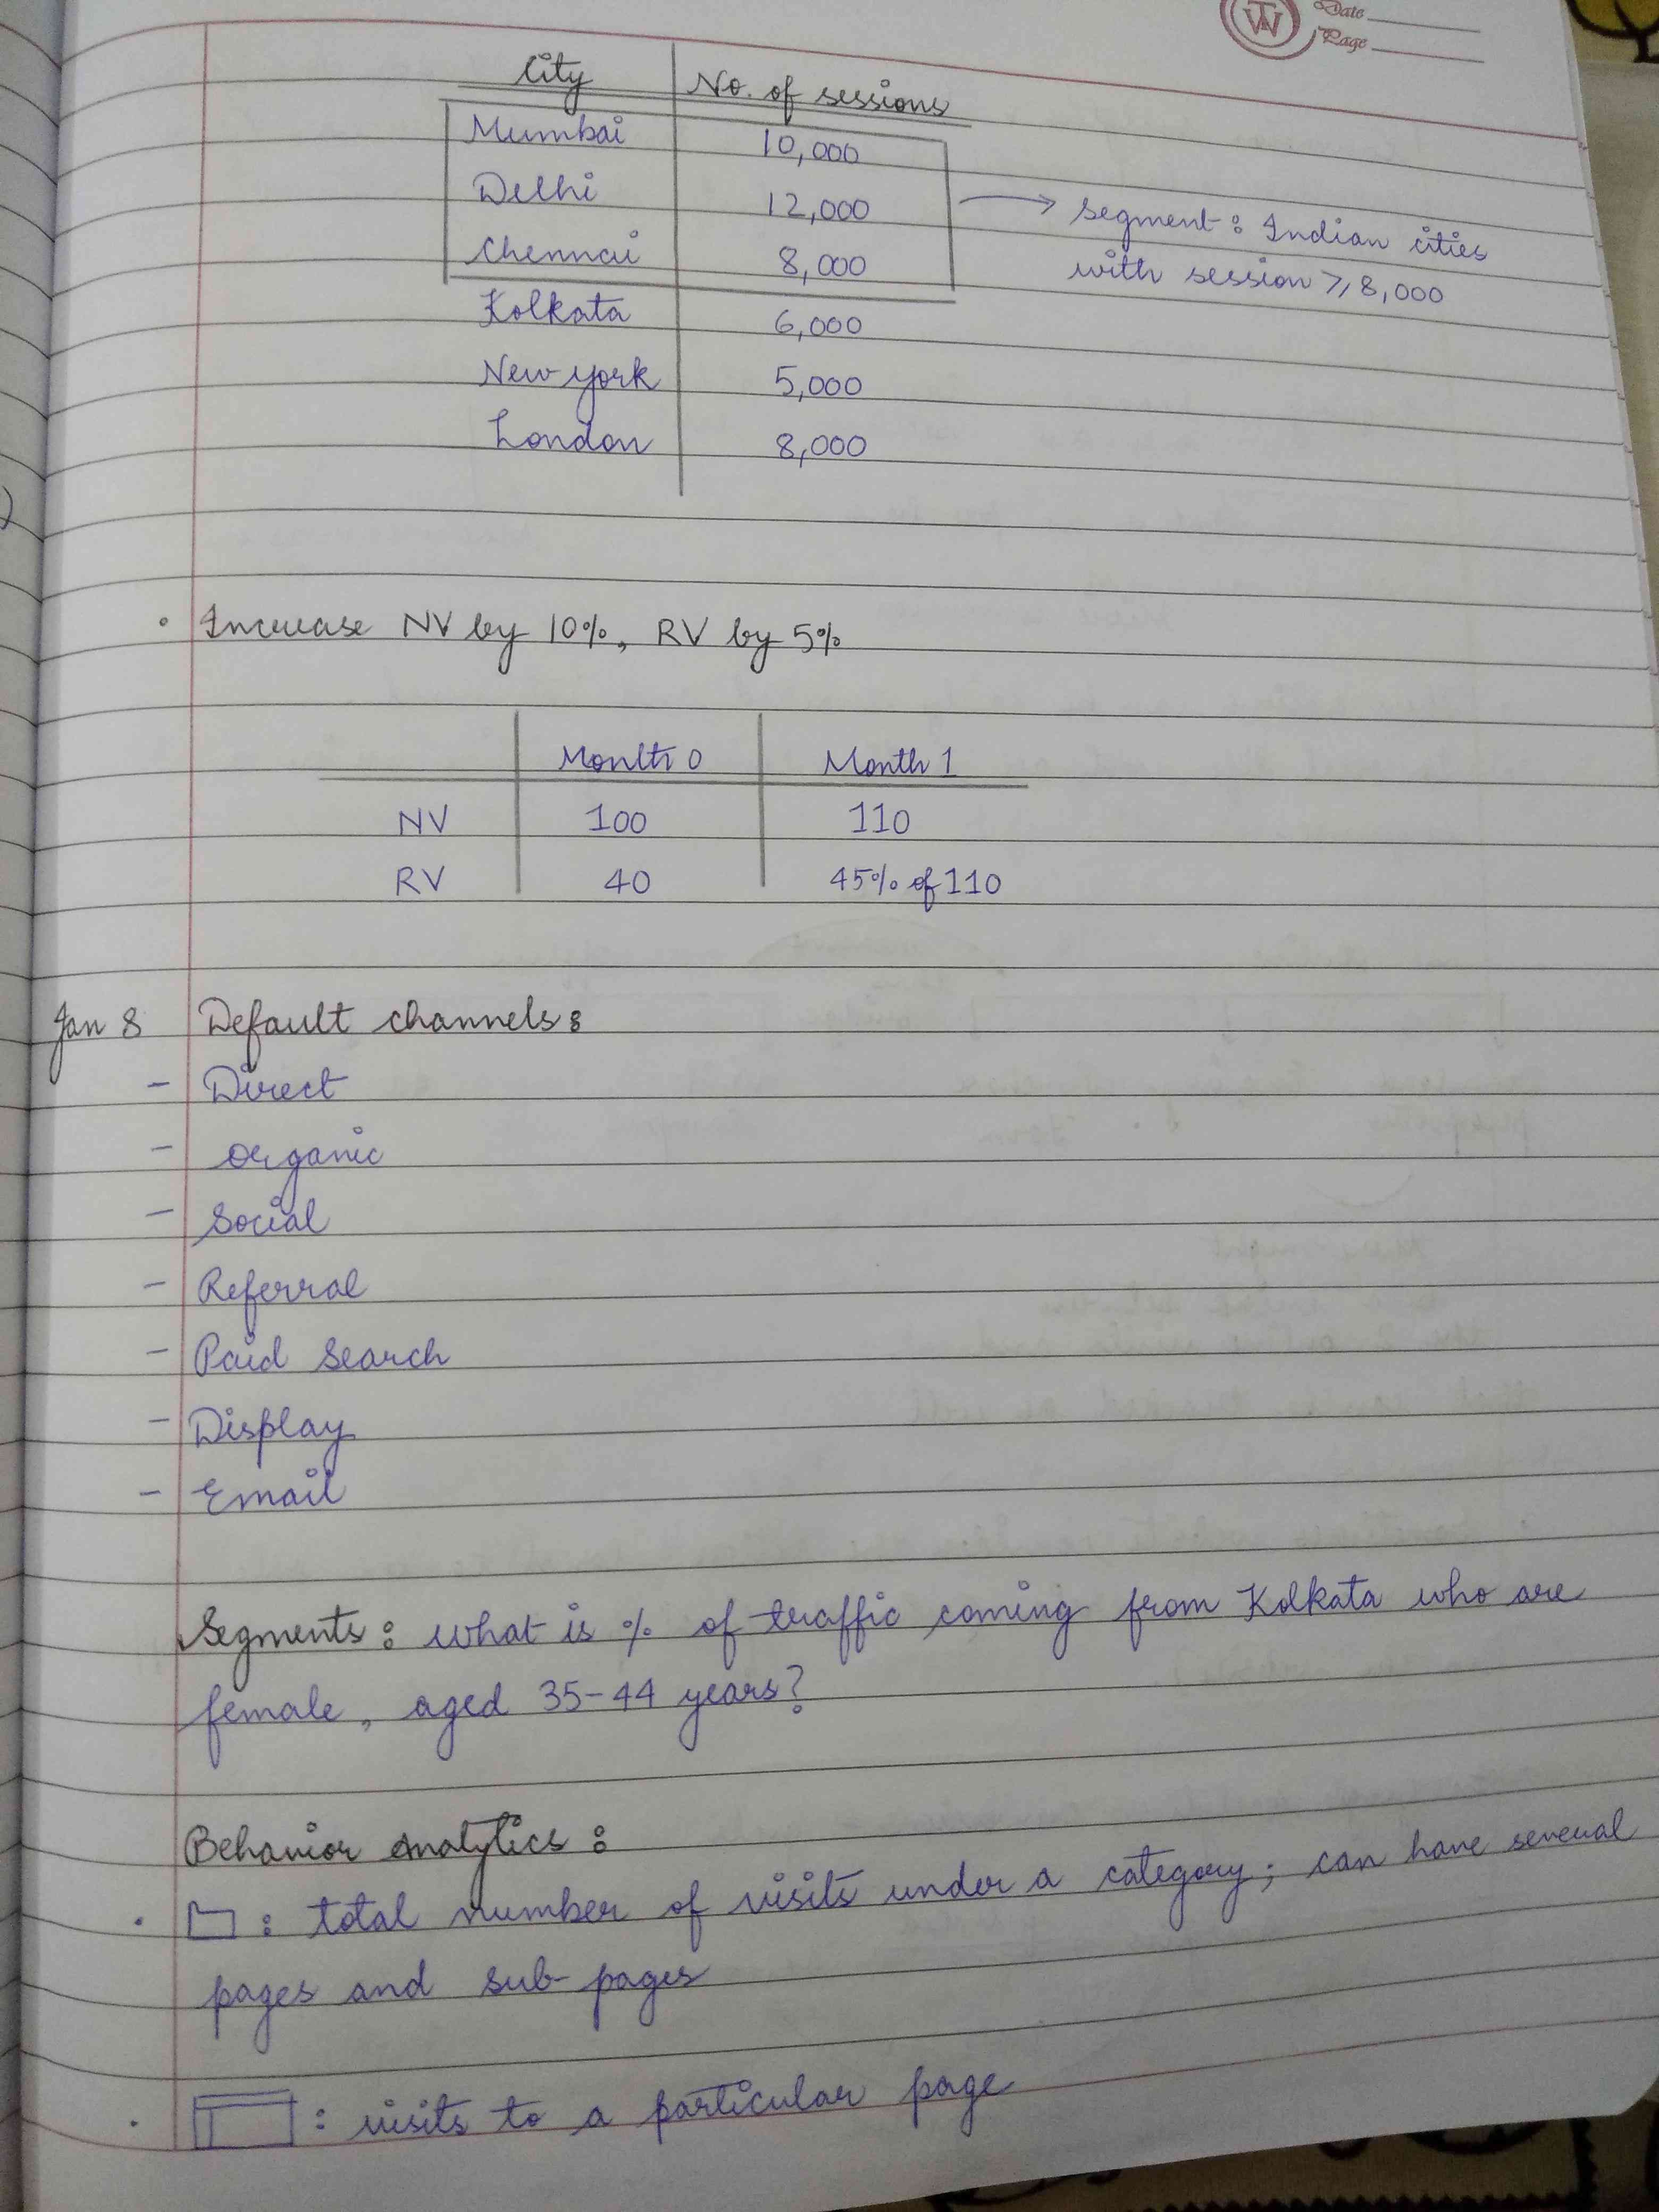 Date
Page
City No. of sessions
Mumbai 10,000
Delhi 12,000
Chennai 8,000
→ Segment: Indian cities
with session ⩾ 8,000
Kolkata 6,000
New york 5,000
London 8,000
• Increase NV by 10%, RV by 5%
Month 0 Month 1
NV 100 110
RV 40 45% of 110
Jan 8 Default channels:
- Direct
- Organic
- Social
- Referral
- Paid Search
- Display
- Email
Segments: what is % of traffic coming from Kolkata who are
female, aged 35-44 years?
Behavior Analytics:
• : total number of visits under a category; can have several
pages and sub-pages
• : visits to a particular page